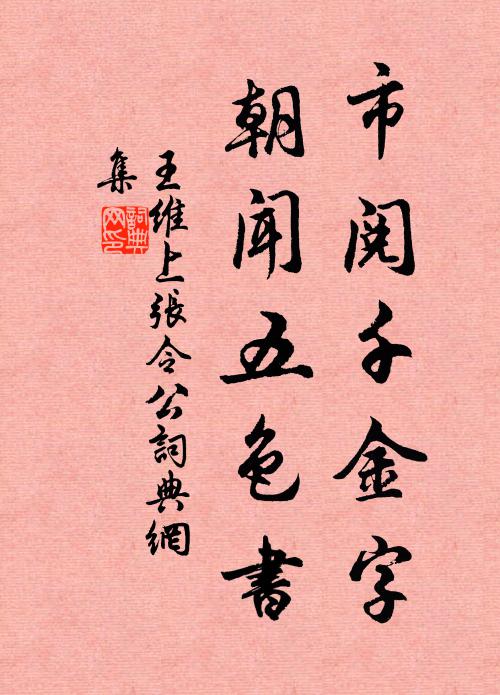 市閱千金字
朝聞五色書
王維上張令公詞典網
集
詞典
网印